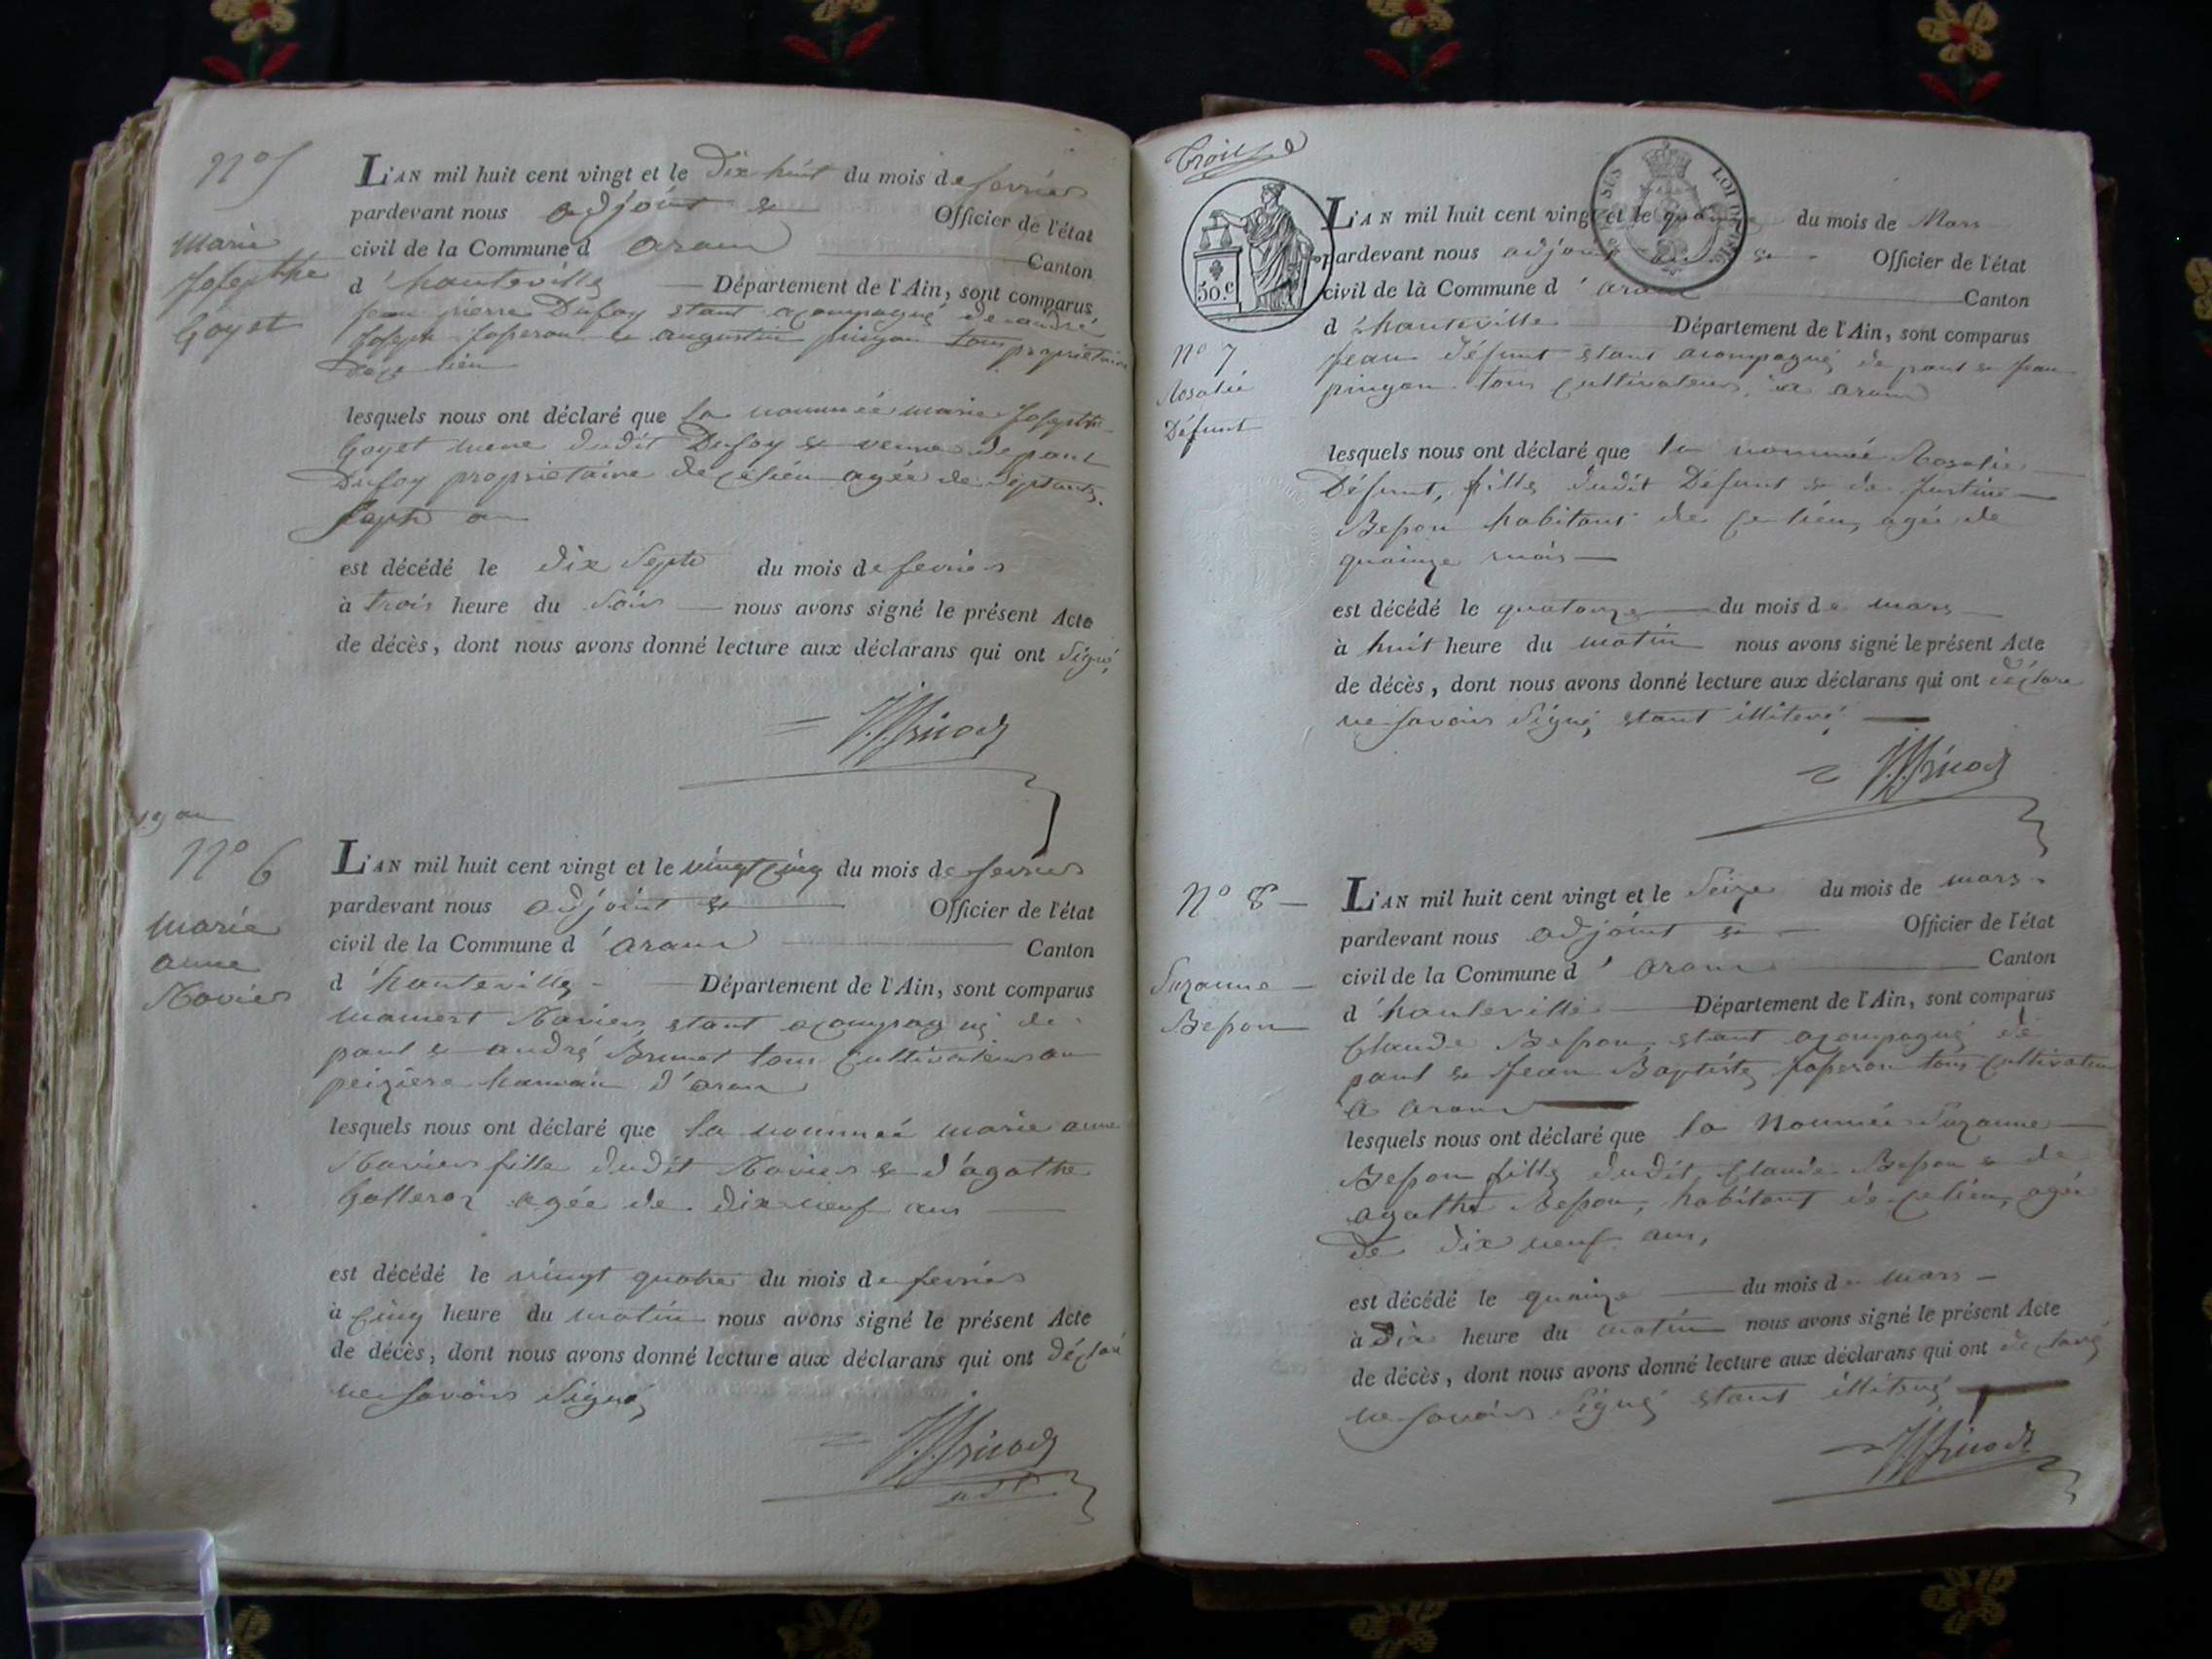 N° 5
Marie
Josephte
Goyet
L'AN mil huit cent vingt et le Dix huit du mois de fevrier
pardevant nous adjoint Officier de l'état
civil de la Commune d aranc Canton
d'hauteville Département de l'Ain, sont comparus
jean pierre Dufoy etant acompagné de andré
Joseph joperon & augustin pingon tous propriétaire
de ce lieu
lesquels nous ont déclaré que la nommée marie Josephte
Goyet mere dudit Dufoy & veuve de paul
Dufoy propriétaire de ce lieu agée de septante
septe an
est décédé le dix septe du mois de fevrier
à trois heure du soir nous avons signé le présent Acte
de décès, dont nous avons donné lecture aux déclarans qui ont signé
19 an
N° 6
Marie
anne
Navier
L'AN mil huit cent vingt et le vingt cinq du mois de fevrier
pardevant nous adjoint Officier de l'état
civil de la Commune d'aranc Canton
d'hauteville Département de l'Ain, sont comparus
mamert Navier etant acompagné de
paul & andré Brunet tous cultivateurs au
peiziere hamau d'aranc
lesquels nous ont déclaré que la nommée marie anne
Navier fille dudit Navier & d'agathe
agée de dix neuf ans
est décédé le vingt quatre du mois de fevrier
à cinq heure du matin nous avons signé le présent Acte
de décès, dont nous avons donné lecture aux déclarans qui ont déclaré
ne savoir signé
Troisse
50.c
SUS LOI DE 1816
N° 7
Rosalie
Défunt
L'AN mil huit cent vingt et le quainze du mois de Mars
pardevant nous adjoint Officier de l'état
civil de la Commune d'aranc Canton
d'hauteville Département de l'Ain, sont comparus
jean Défunt etant acompagné de paul & jean
pingon tous cultivateurs a aranc
lesquels nous ont déclaré que la nommée Rosalie
Défunt, fille dudit Défunt & de Justine
Besson habitant de ce lieu, agée de
quainze mois
est décédé le quatorze du mois de mars
à huit heure du matin nous avons signé le présent Acte
de décès, dont nous avons donné lecture aux déclarans qui ont déclaré
ne savoir signé, etant illiteré
N° 8
Suzanne
Besson
L'AN mil huit cent vingt et le seize du mois de mars
pardevant nous adjoint Officier de l'état
civil de la Commune d'aranc Canton
d'hauteville Département de l'Ain, sont comparus
Claude Besson, etant acompagné de
paul & jean Baptiste joperon tous cultivateur
a aranc
lesquels nous ont déclaré que la Nommée Suzanne
Besson fille dudit Claude Besson & de
agathe Besson, habitant de ce lieu, agée
de dix neuf ans,
est décédé le quainze du mois de mars
à Dix heure du matin nous avons signé le présent Acte
de décès, dont nous avons donné lecture aux déclarans qui ont declaré
ne savoir signé etant illiteré